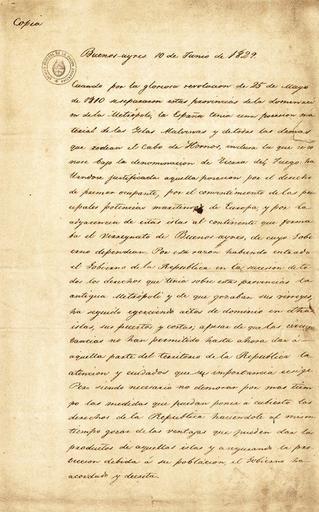 Copia
Buenos-ayres 10 de Junio de 1829.
Cuando por la gloriosa revolucion de 25 de Mayo
de 1810 se separaron estas provincias de la dominacion
de la Metropoli, la España tenia una posesion ma
terial de las Islas Malvinas y de todas las demas
que rodean el Cabo de Hornos, incluso la que se co
noce bajo la denominacion de Tierra del Fuego, ha
llandose justificada aquella posesion por el derecho
de primer ocupante, por el consentimiento de las prin
cipales potencias maritimas de Europa, y por la
adyacencia de estas islas al continente que forma
ba el Vireynato de Buenos-ayres, de cuyo Gobi
erno dependian. Por esta razon habiendo entrado
el Gobierno de la Republica en la sucesion de to
dos los derechos que tenia sobre estas provincias la
antigua Metropoli y de que gozaban sus vireyes,
ha seguido egerciendo actos de dominio en dichas
islas, sus puertos y costas, apesar de que las circuns
tancias no han permitido hasta ahora dar a
aquella parte del territorio de la Republica la
atencion y cuidados que su importancia exige.
Pero siendo necesario no demorar por mas tiem
po las medidas que puedan poner a cubierto los
derechos de la Republica haciendole al mismo
tiempo gozar de las ventajas que pueden dar los
productos de aquellas islas y asegurando la pro
teccion debida á su poblacion, el Gobierno ha
acordado y decreta.